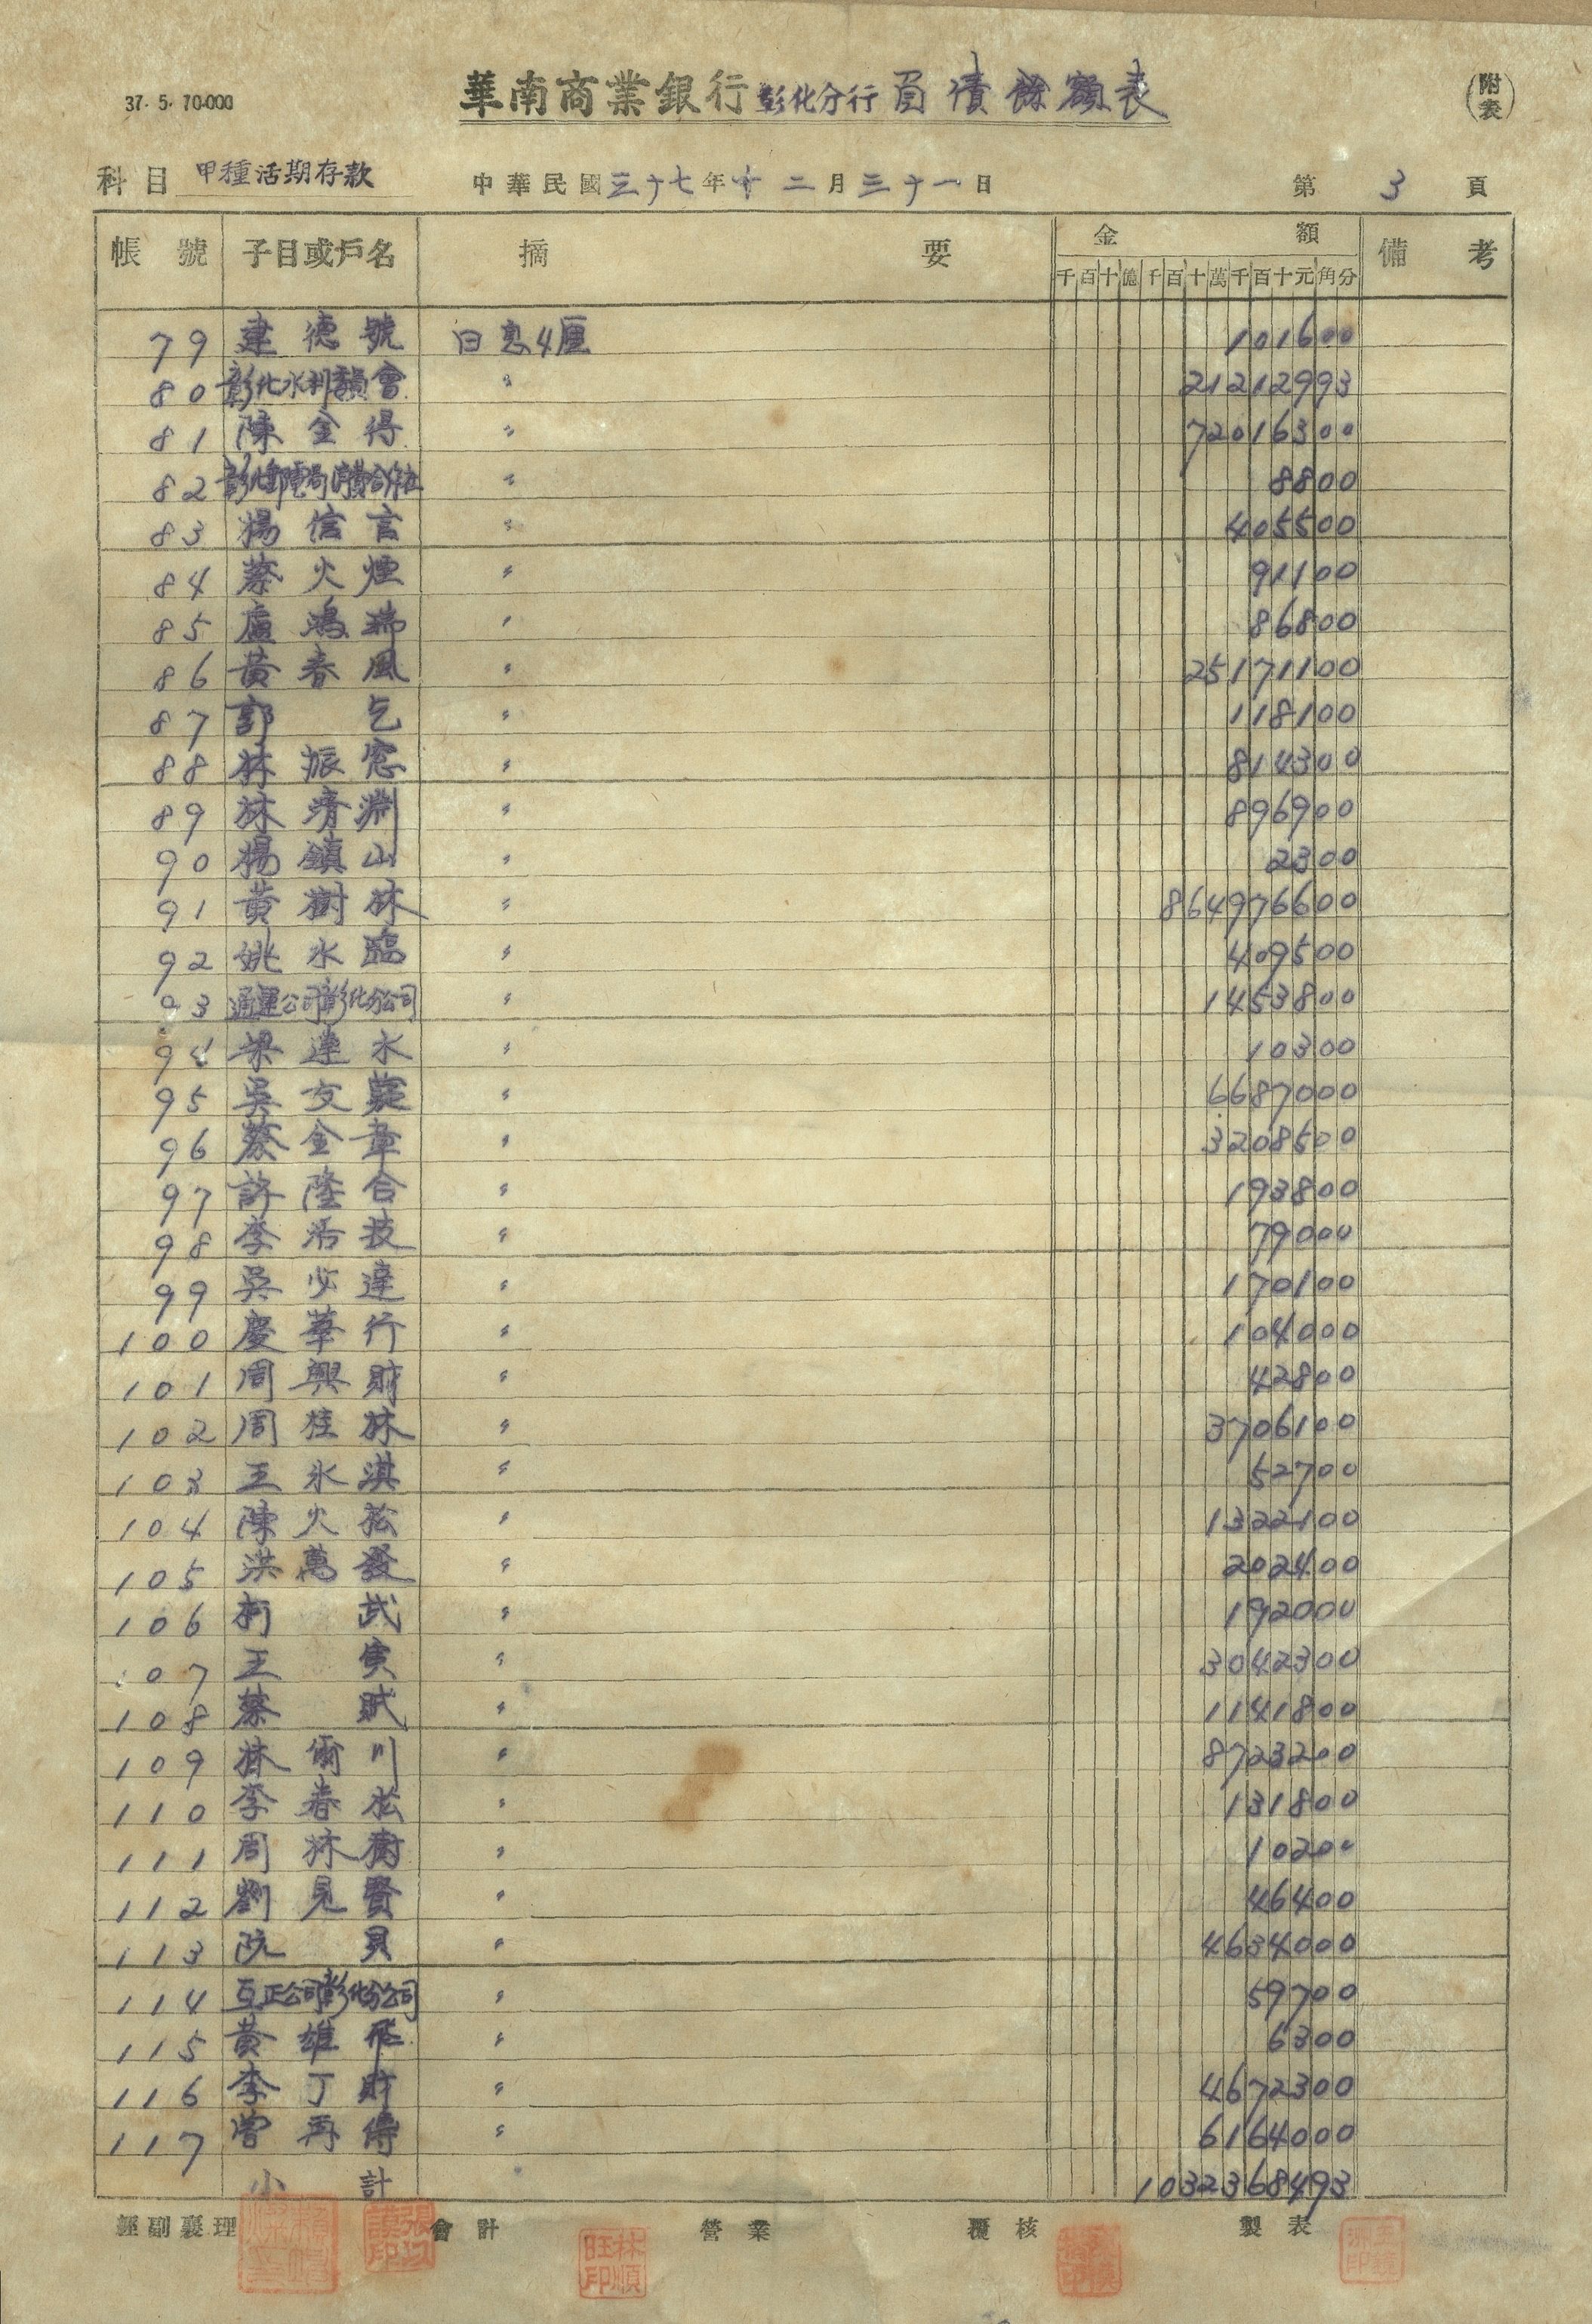 37. 5. 70.000
華南商業銀行彰化分行負債餘額表
(附表)
科目 甲種活期存款 中華民國三十七年十二月三十一日 第3頁
帳號 子目或戶名 摘要 金額 備考
千百十億千百十萬千百十元角分
79 建德號 日息4厘 101600
80 彰化水利委員會 〃 21212993
81 陳金得 〃 72016300
82 彰化郵電局消費合作社 〃 8800
83 楊信言 〃 405500
84 蔡火煙 〃 91100
85 盧鴻瑞 〃 86800
86 黃春風 〃 25171100
87 郭乞 〃 118100
88 林振窓 〃 814300
89 林清淵 〃 896900
90 楊鎮山 〃 2300
91 黃樹林 〃 864976600
92 姚水臨 〃 409500
93 通運公司彰化分公司 〃 1453800
94 梁達水 〃 10300
95 吳文 〃 6687000
96 蔡金章 〃 3208500
97 許隆合 〃 193800
98 李活技 〃 79000
99 吳必達 〃 170100
100 慶華行 〃 104000
101 周興財 〃 42800
102 周桂林 〃 3706100
103 王水淇 〃 52700
104 陳火松 〃 1322100
105 洪萬發 〃 202400
106 柯武 〃 192000
107 王寅 〃 3042300
108 蔡賦 〃 1141800
109 林爾川 〃 8723200
110 李春松 〃 131800
111 周林樹 〃 10200
112 劉見賢 〃 46400
113 阮貝 〃 4634000
114 互正公司彰化分公司 〃 59700
115 黃雄飛 〃 6300
116 李丁財 〃 4672300
117 曾再傳 〃 6164000
小計 1032368493
經副襄理 會計 營業 覆核 製表
林順旺印